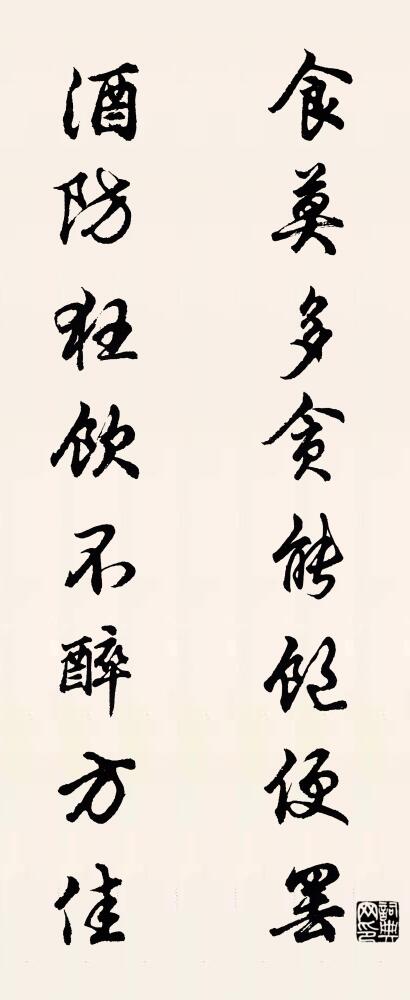 食莫多贪能饱便罢
酒防狂饮不醉方佳
词典网印